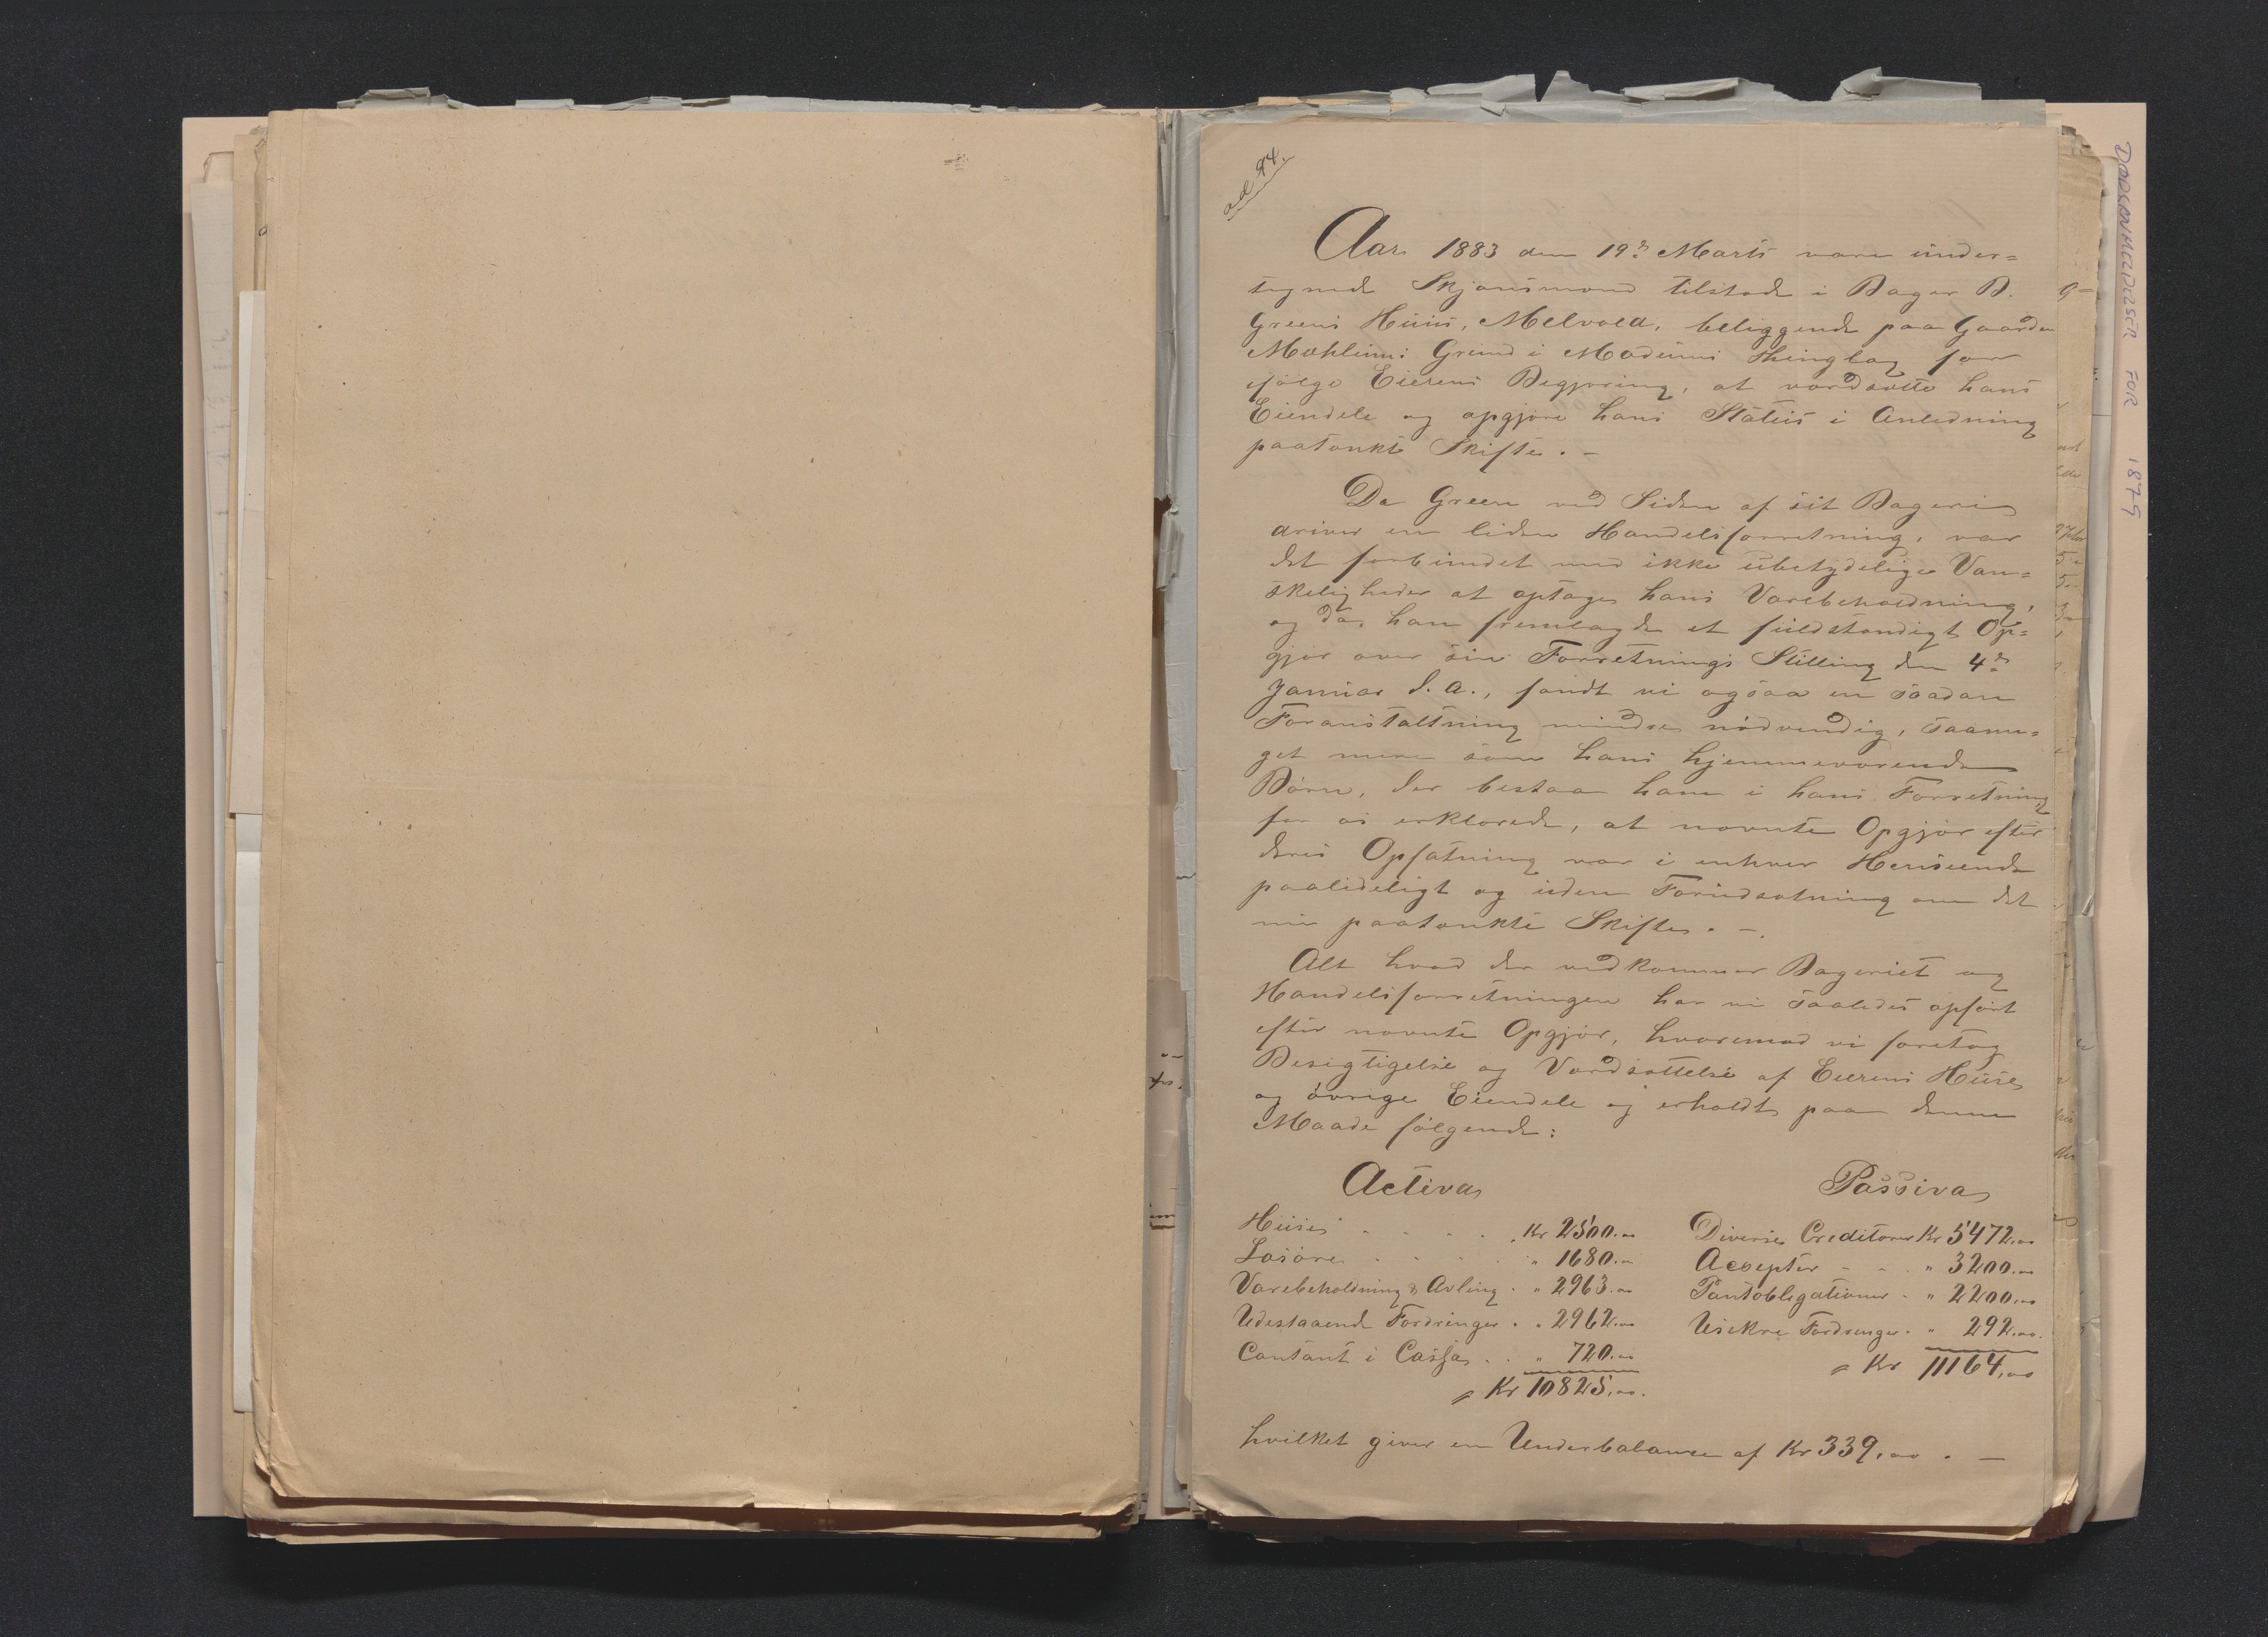 ad 94.
Aar 1883 den 19de Marts vare under=
tegnede Skjønsmænd tilstede i Bager B.
Greens Huus, Melvold, beliggende paa Gaarden
Mæhlums Grund i Modums Thinglag for
efølge Eierens Begjæring, at værdsætte hans
Eiendele og opgjøre hans Status i Anledning
paatænkt Skifte. –
Da Green ved Siden af sit Bageri
driver en liden Handelsforretning, var
det forbundet med ikke ubetydelige Van=
skeligheder at optage hans Varebeholdning,
og da han fremlagde et fuldstændigt Op=
gjør over sin Forretnings Stilling den 4de
Januar d. a., fandt vi ogsaa en saadan
Foranstaltning mindre nødvendig, saame=
get mere som hans hjemmeværende
Børn, der bestaa ham i hans Forretning
for os erklærede, at nævnte Opgjør efter
deres Opfatning var i enhver Henseende
paalideligt og uden Forudsætning om det
nu paatænkte Skifte. –.
Alt hvad der vedkommer Bageriet og
Handelsforretningen har vi saaledes opført
efter nævnte Opgjør, hvoremod vi foretog
Besigtigelse og Værdsættelse af Eierens Huse
og øvrige Eiendele og erholdt paa denne
Maade følgende:
Activa
Huse . . . . Kr 2500.00
Løsøre . . . " 1680.00
Varebeholdning & Avling . " 2963.00
Udestaaende Fordringer . " 2962.00
Contant i Cassa . . " 720.00
Kr 10825,00.
Passiva
Diverse Creditorer Kr 5472,00
Accepter - - . " 3200.00
Pantobligationer . " 2200,00
Usikre Fordringer . " 292,00.
Kr 11164,00
hvilket giver en Underbalance af Kr 339,00 . –
DØDSANMELDELSER FOR 1875